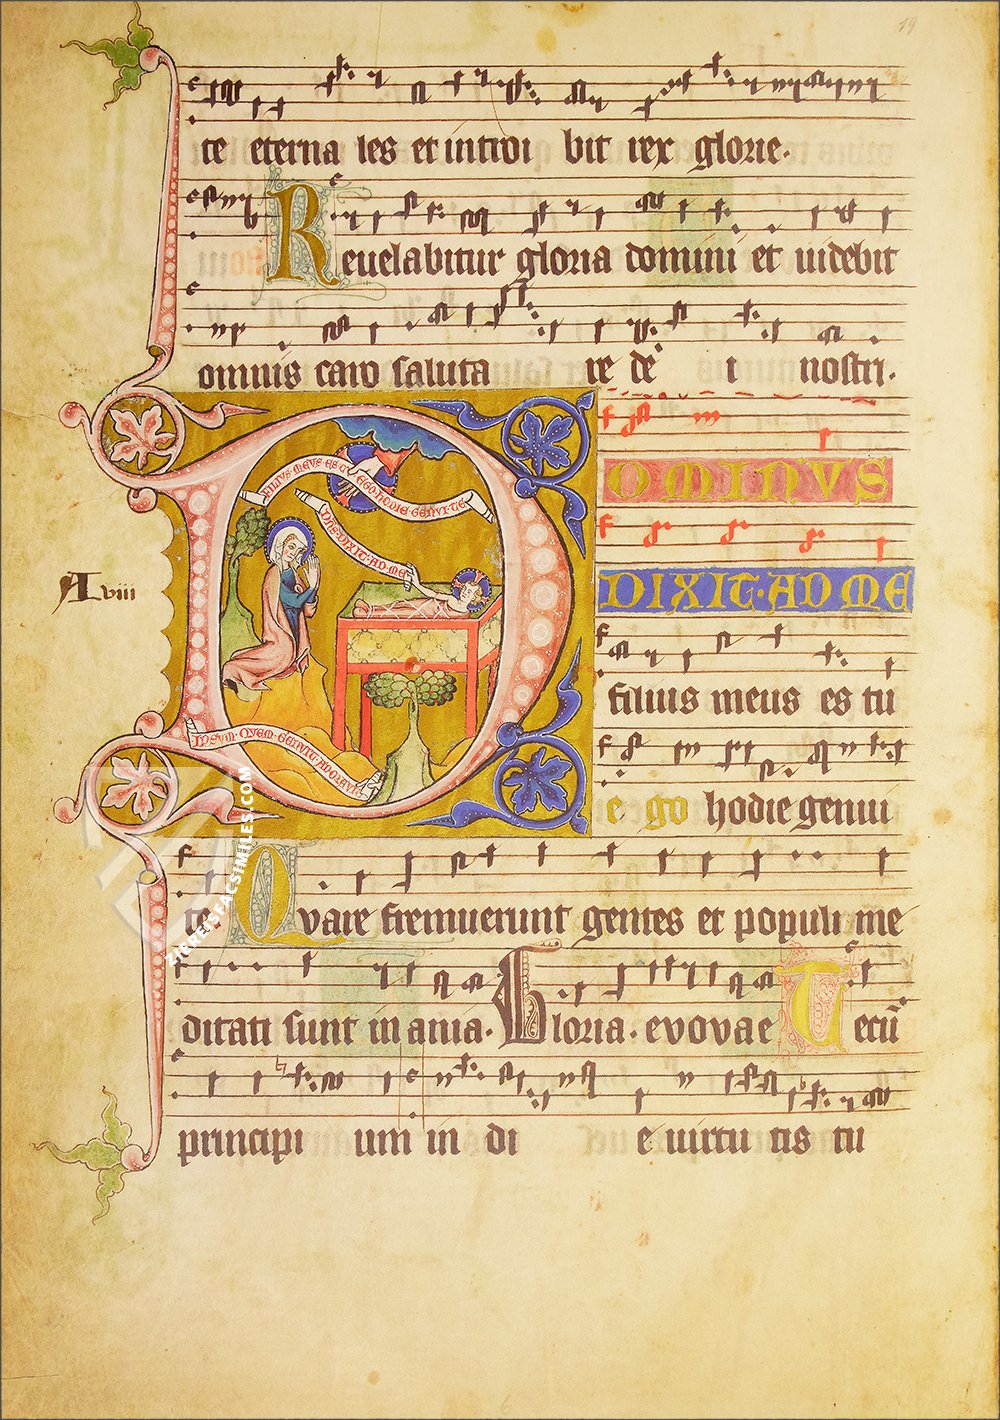 19
te eterna les et introi bit rex glorie.
Reuelabitur gloria domini et uidebit
omnis caro saluta re de i nostri.
DOMINVS
DIXIT·AD·ME
FILIVS·MEVS·ES·TV
EGO·HODIE·GENVI·TE
DNS·DIXIT·AD·ME
filius meus es tu
IPSVM·QVEM·GENVIT·ADORAVIT
A viii
e go hodie genui
te. Quare fremuerunt gentes et populi me
ditati sunt in ania. Gloria. evovae Tecū
principi um in di e uirtu tis tu
ZIEREISFACSIMILES.COM